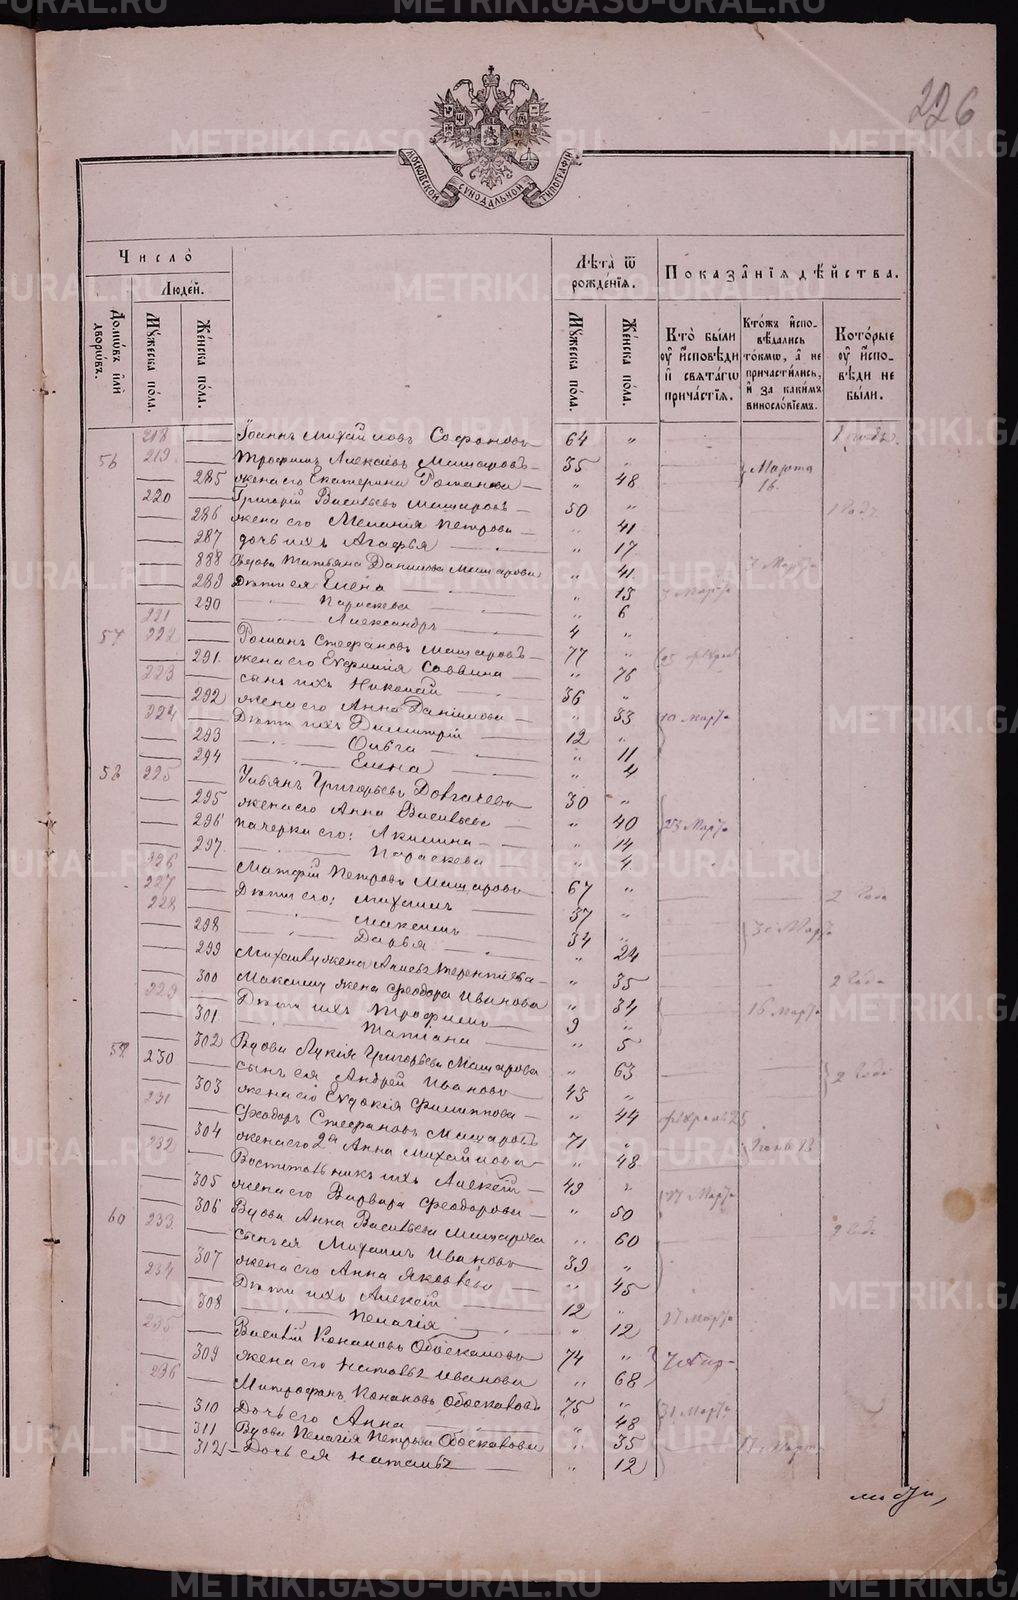 226
МОСКОВСКОЙ СѴНОДАЛЬНОЙ ТИПОГРАФІИ
Число̀
Людей.
Домѡвъ и҆лѝ дворѡ́въ.
Мꙋ́жеска по́ла.
Же́нска по́ла.
Лѣ́та ѿ рожде́нїѧ.
Мꙋ́жеска по́ла.
Же́нска по́ла.
Показа̑нїѧ дѣ́йства.
Кто̀ бы́ли ᲂу҆ и҆́сповѣди и҆ свѧта́гѡ прича́стїѧ.
Кто́жъ и҆спо-вѣ́дались то́кмѡ, а҆ не причасти́лись, и҆ за каки́мъ винослові́емъ.
Кото́рые ᲂу҆ и҆́спо-вѣди не бы́ли.
218 Іоаннъ Михайловъ Сафоновъ 64 "
56 219 Трофимъ Алексѣевъ Машаровъ 35 " Марта 16.
285 жена его Екатерина Романова " 48
220 Григорій Васильевъ Машаровъ 50 "
286 жена его Меланія Петрова " 41
287 дочь ихъ Агафья " 17
888 Вдова Татьяна Данилова Машарова " 41 7 Марта
289 Дѣти ея Елена " 13 7 Марта
290 Параскева " 6
221 Александръ 4 "
57 222 Романъ Стефановъ Машаровъ 77 "
291. жена его Евфимія Саввина " 76
223 сынъ ихъ Николай 36 "
292 жена его Анна Даніилова " 33 10 Марта
224 Дѣти ихъ Димитрій 12 "
293 Ольга " 11
294 Елена " 4
58 225 Ульянъ Григорьевъ Довгалевъ 30 "
295 жена его Анна Васильева " 40 23 Марта
296 пачерки его: Акилина " 14
297. Параскева " 4
226 Матфій Петровъ Машаровъ 67 " 2 года
227 Дѣти его: Михаилъ 37 "
228 Максимъ 34 "
298 Дарья " 24
299 Михаилу жена Агнія Терентіева " 35 2 года
300 Максиму жена Феодора Иванова " 34 16 Марта
229 Дѣти ихъ Трофимъ 9 "
301. Татіана " 5
59 302 Вдова Лукія Григорьева Машарова " 63
230 сынъ ея Андрей Ивановъ 43 " 2 года
303 жена его Евдокія Филиппова " 44 февраль 25
231 Феодоръ Стефановъ Машаровъ 71 "
304 жена его 2я Анна Михайлова " 48
232 Воспитанникъ ихъ Алексѣй 49 "
305 жена его Варвара Феодорова " 50 Марта
60 306 Вдова Анна Васильева Машарова " 60
233 сынъ ея Михаилъ Ивановъ 39 "
307 жена его Анна Яковлева " 45
234 Дѣти ихъ Алексѣй 12 "
308 Пелагія " 12 17 Марта
235 Василій Конановъ Обоскаловъ 74 "
309 жена его Наталья Иванова " 68
236 Митрофанъ Конановъ Обоскаловъ 75 "
310 Дочь его Анна " 48 31 Марта
311 Вдова Пелагія Петрова Обоскалова " 35
312 Дочь ея Наталья " 12
METRIKI.GASO-URAL.RU